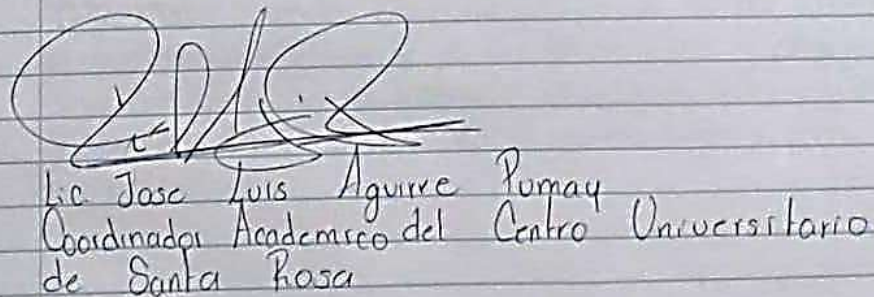 Lic Jose Luis Aguirre Pumay
Coordinador Academico del Centro Universitario
de Santa Rosa